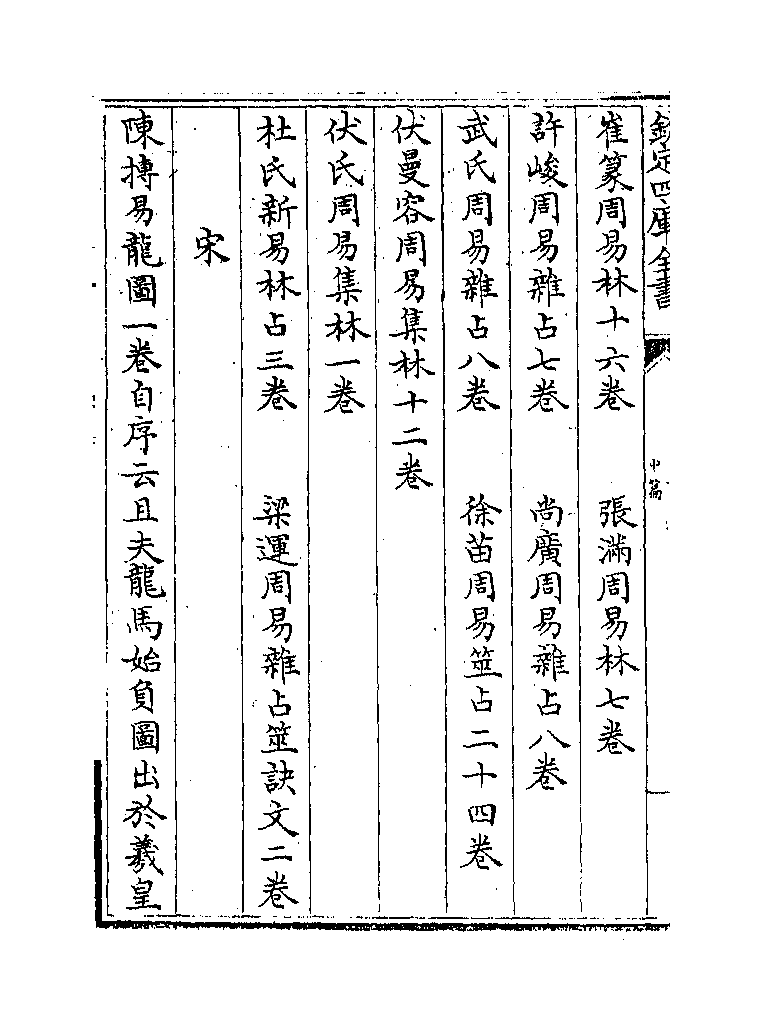 欽定四庫全書
中篇
崔篆周易林十六卷　張滿周易林七卷
許峻周易雜占七卷　尚廣周易雜占八卷
武氏周易雜占八卷　徐苗周易筮占二十四卷
伏曼容周易集林十二卷
伏氏周易集林一卷
杜氏新易林占三卷　梁運周易雜占筮訣文二卷
宋
陳摶易龍圖一卷自序云且夫龍馬始負圖出於羲皇